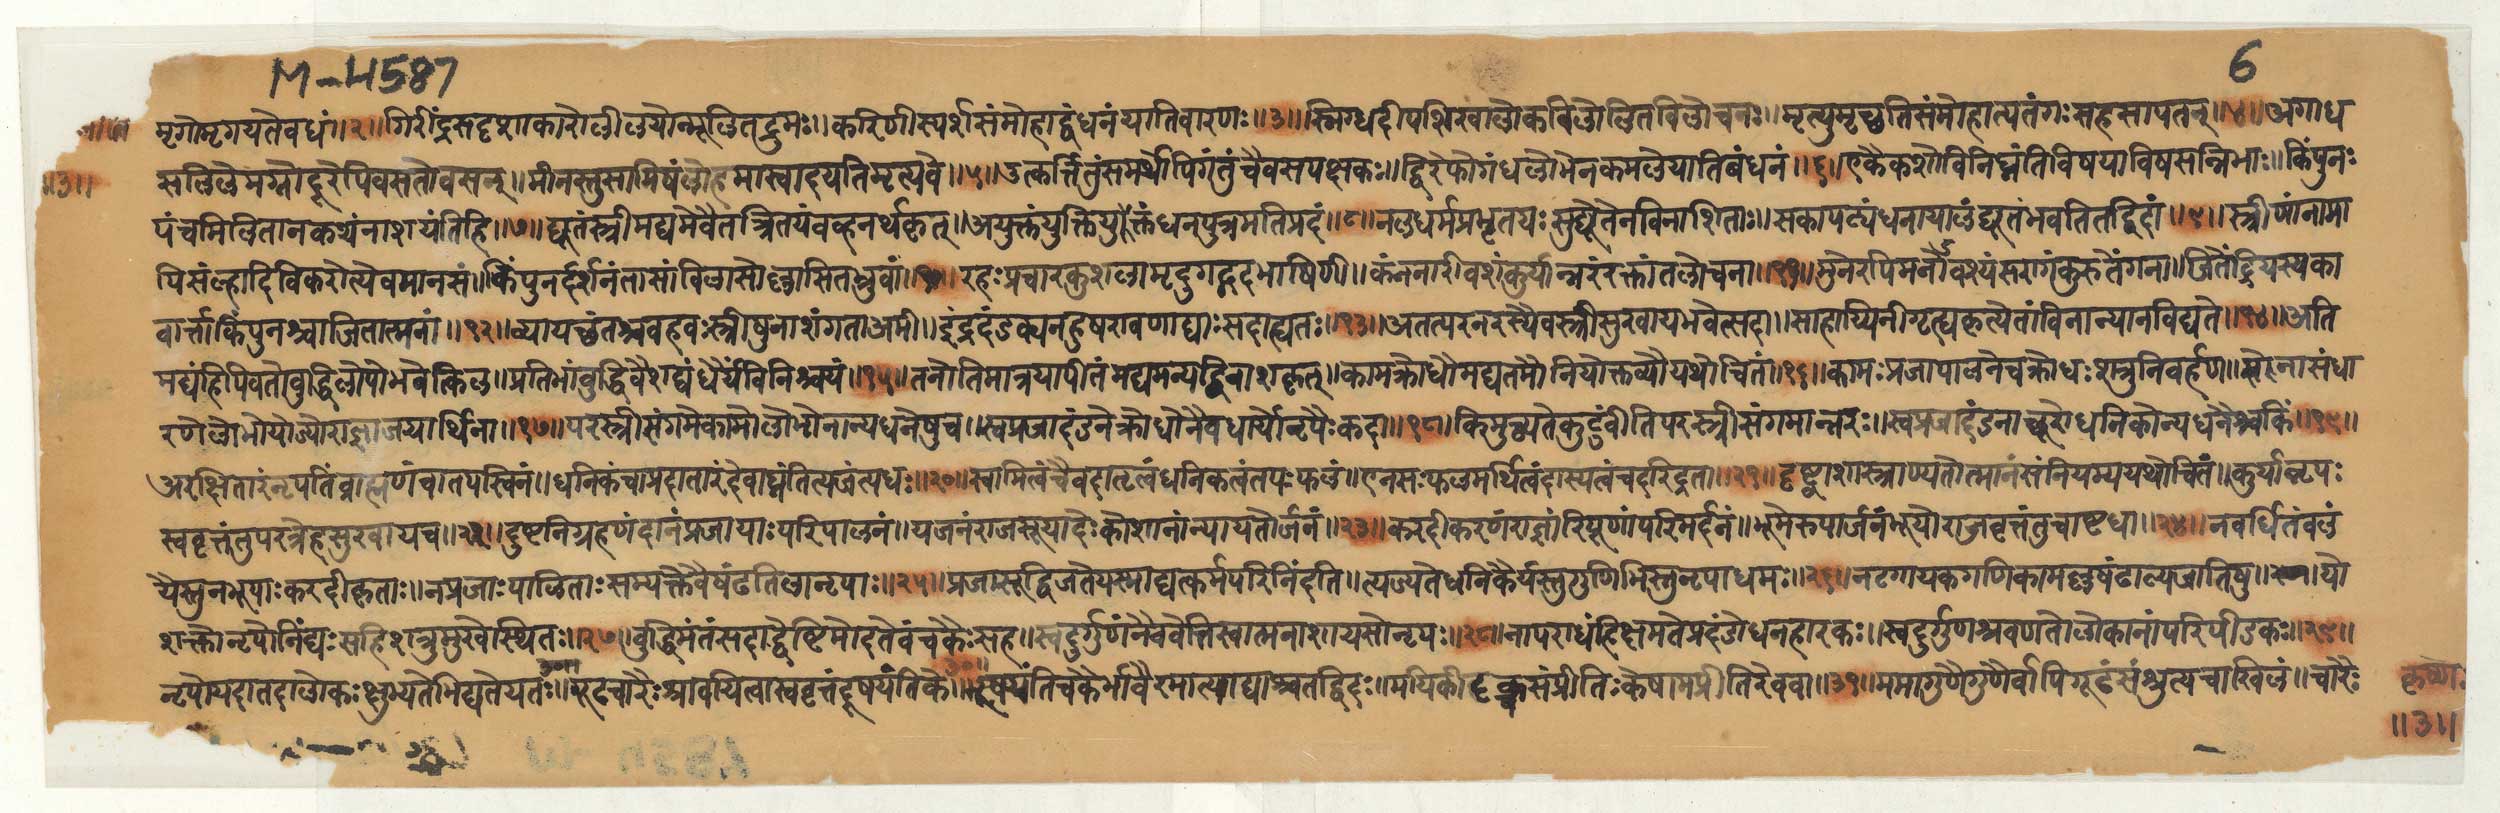 M-4587
6
मृगोमृगयतेवधं॥२॥गिरींद्रसदृशाकारोलीलयोन्मूलितद्रुमः॥करिणीस्पर्शसंमोहाद्बंधनंयातिवारणः॥३॥स्निग्धदीपशिखालोकविलोलितविलोचनः॥मृत्युमृच्छतिसंमोहात्पतंगःसहसापतन्॥४॥अगाध
सलिलेमग्नोदूरेपिवसतोवसन्॥मीनस्तुसामिषंलोहमास्वादयतिमृत्यवे॥५॥उत्कर्त्तितुंसमर्थोपिगंतुंचैवसपक्षकः॥द्विरेफोगंधलोभेनकमलेयातिबंधनं॥६॥एकैकशोविनिघ्नंतिविषयाविषसन्निभाः॥किंपुनः
॥३॥
पंचमिलितानकथंनाशयंतिहि॥७॥द्यूतंस्त्रीमद्यमेवैतत्त्रितयंवव्हनर्थकृत्॥अयुक्तंयुक्तियुक्तंधनपुत्रमतिप्रदं॥८॥नलधर्मप्रभृतयःसुद्यूतेनविनाशिताः॥सकापट्यंधनायालंद्यूतंभवतितद्विदां॥९॥स्त्रीणांनामा
पिसंल्हादिविकरोत्येवमानसं॥किंपुनर्दर्शनंतासांविलासोल्लासितभ्रुवां॥१०॥रहःप्रचारकुशलामृदुगद्गदभाषिणी॥कंननारीवशंकुर्यान्नरंरक्तांतलोचना॥११॥मुनेरपिमनोवश्यंसरागंकुरुतेंगना॥जितेंद्रियस्यका
वार्त्ताकिंपुनश्चाजितात्मनां॥१२॥व्यायच्छंतश्चवहवःस्त्रीषुनाशंगताअमी॥इंद्रदंडक्यनहुषरावणाद्याःसदाह्यतः॥१३॥अतत्परनरस्यैवस्त्रीसुखायभवेत्सदा॥साहाय्यिनीगृह्यकृत्येतांविनान्यानविद्यते॥१४॥अति
मद्यंहिपिवतोबुद्धिलोपोभवेत्किल॥प्रतिभांबुद्धिवैशद्यंधैर्यंविनिश्चयं॥१५॥तनोतिमात्रयापीतंमद्यमन्यद्विनाशकृत्॥कामक्रोधौमद्यतमौनियोक्तव्यौयथोचितं॥१६॥कामःप्रजापालनेचक्रोधःशत्रुनिवर्हणे॥सेनासंधा
रणेलोभोयोज्योराज्ञाजयार्थिना॥१७॥परस्त्रीसंगमेकामोलोभोनान्यधनेषुच॥स्वप्रजादंडनेक्रोधोनैवधार्योनृपैःकदा॥१८॥किमुच्यतेकुटुंवीतिपरस्त्रीसंगमान्नरः॥स्वप्रजादंडनाच्छूरोधनिकोन्यधनैश्चकिं॥१९॥
अरक्षितारंनृपतिंब्राह्मणंचातपस्विनं॥धनिकंचाप्रदातारंदेवाघ्नंतित्यजंत्यधः॥२०॥स्वामित्वंचैवदातृत्वंधनिकत्वंतपःफलं॥एनसःफलमर्थित्वंदास्यत्वंचदरिद्रता॥२१॥दृष्ट्वाशास्त्राण्यतोत्मानंसंनियम्ययथोचितं॥कुर्यान्नृपः
स्ववृत्तंतुपरत्रेहसुखायच॥२२॥दुष्टनिग्रहणंदानंप्रजायाःपरिपालनं॥यजनंराजसूयादेःकोशानांन्यायतोर्जनं॥२३॥करदीकरणंराज्ञांरिपूणांपरिमर्दनं॥भूमेरुपार्जनंभूयोराजवृत्तंतुचाष्टधा॥२४॥नवर्धितंवलं
यैस्तुनभूपाःकरदीकृताः॥नप्रजाःपालिताःसम्यक्तेवैषंढतिलानृपाः॥२५॥प्रजासूद्विजतेयस्माद्यत्कर्मपरिनिंदति॥त्यज्यतेधनिकैर्यस्तुगुणिभिस्तुनृपाधमः॥२६॥नटगायकगणिकामल्लषंढाल्पजातिषु॥यो
शक्तोनृपोनिंद्यःसहिशत्रुमुखेस्थितः॥२७॥बुद्धिमंतंसदाद्वेष्टिमोदतेवंचकैःसह॥स्वदुर्गुणंनैववेत्तिस्वात्मनाशायसोनृपः॥२८॥नापराधंहिक्षमतेप्रदंडोधनहारकः॥स्वदुर्गुणश्रवणतोलोकानांपरिपीडकः॥२९॥
नृपोयदातदालोकःक्षुभ्यतेभिद्यतेयतः॥गूढचारैःश्रावयित्वास्ववृत्तंदूषयंतिके॥भूषयंतिचकैर्भावैरमात्याद्याश्चतद्विदः॥मयिकीदृक्चसंप्रीतिःकेषामप्रीतिरेववा॥३१॥ममागुणैर्गुणैर्वापिगूढंसंश्रुत्यचाखिलं॥चारैः
कृष्णो
॥३॥